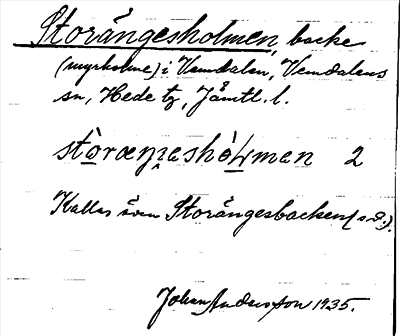 Storängesholmen, backe
(myrholme) i Vemdalen, Vemdalens
sn, Hede tg, Jämtl. l.
2
Kallas även Storängesbacken (s.d.).
Johan Andersson 1935.